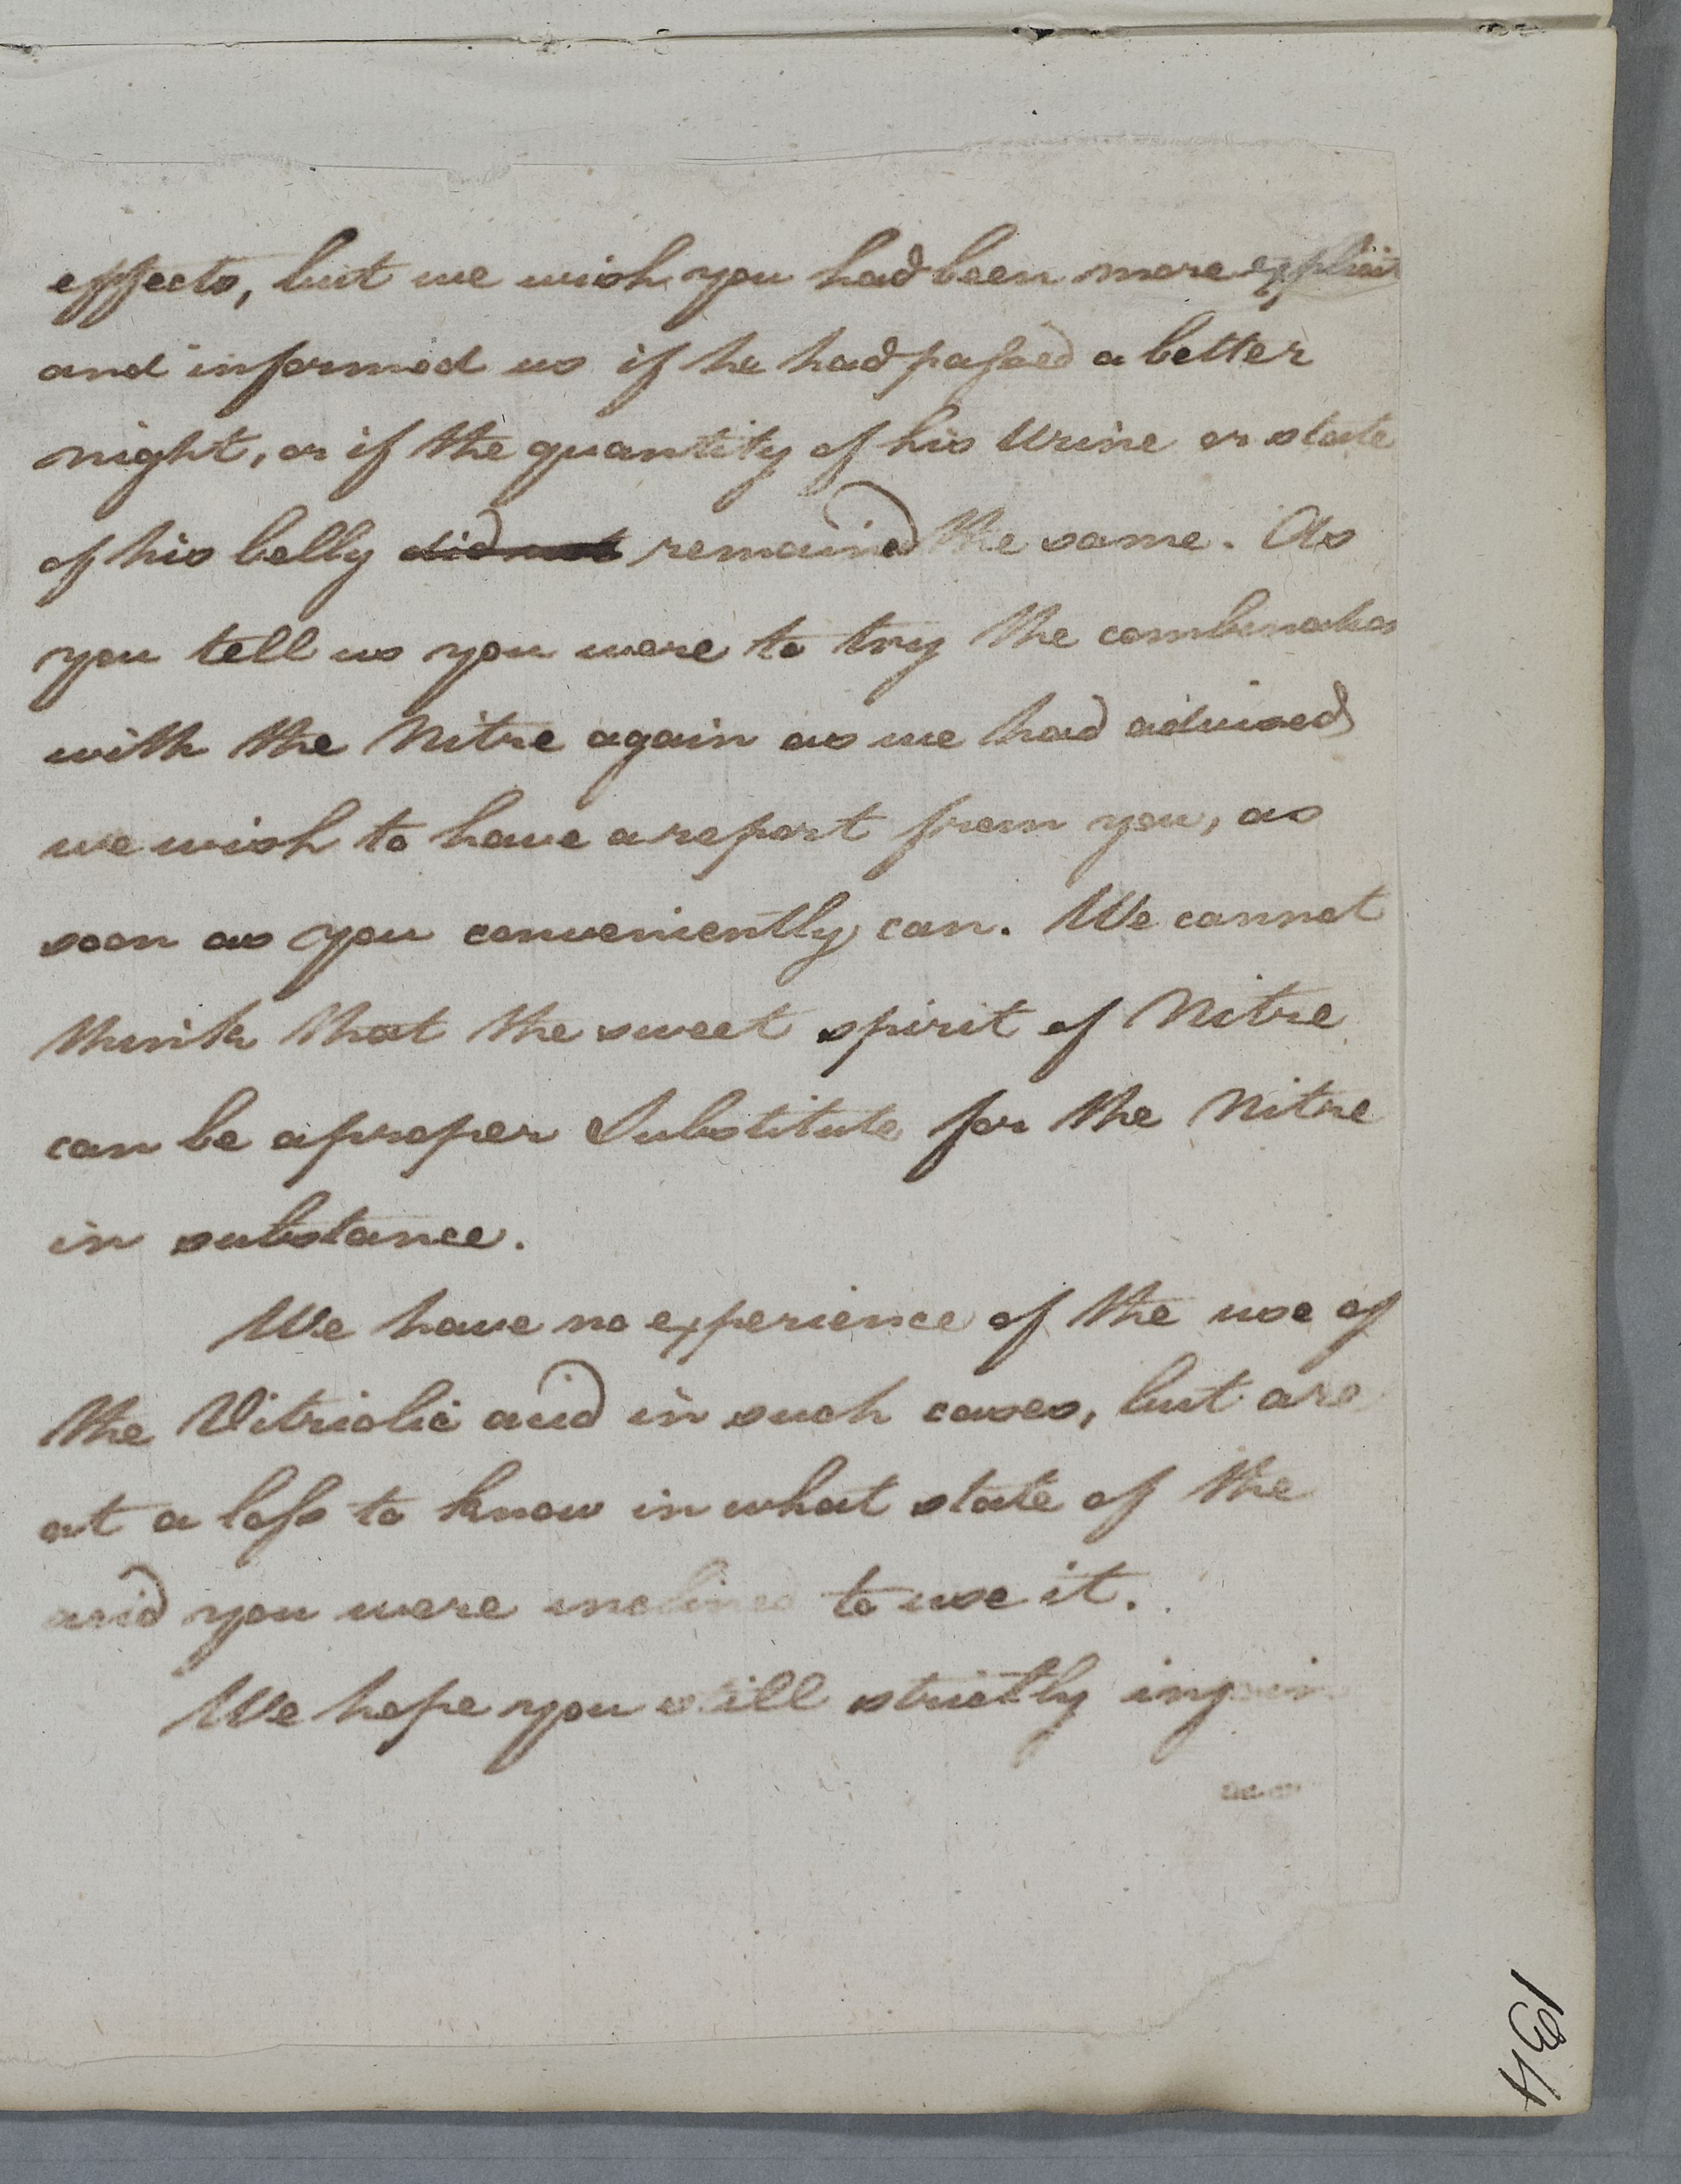 effects, but we wish you had been more explicit
and informed us if he had passed a better
night, or if the quantity of his Urine or state
of his belly did not remained the same. As
you tell us you were to try the combination
with the Nitre again as we had advised
we wish to have a report from you, as
soon as you conveniently can. We cannot
think that the sweet spirit of Nitre
can be a proper Substitute for the Nitre
in substance.
We have no experience of the use of
the Vitriolic acid in such cases, but are
at a loss to know in what state of the
acid you were inclined to use it.
We hope you will strictly injoin
134